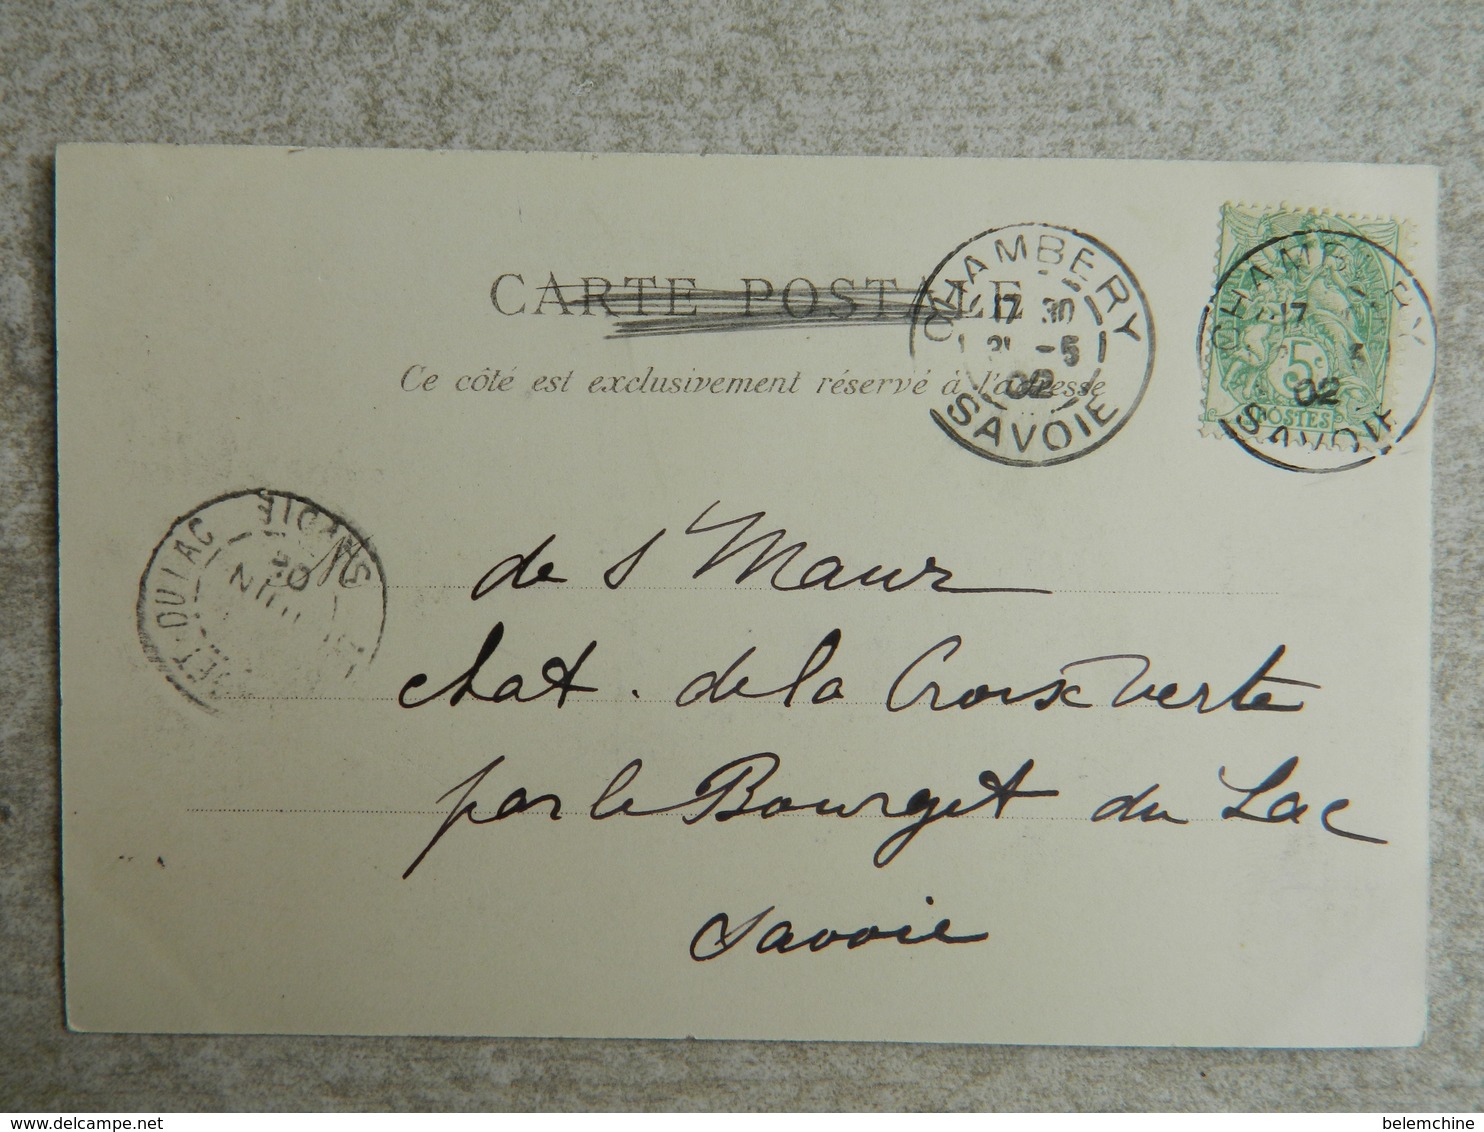 CARTE POSTALE
Ce côté est exclusivement réservé à l'adresse
CHAMBERY
17 30
-5
02
SAVOIE
CHAMBERY
17
02
SAVOIE
5c
POSTES
DU LAC
SAVOIE
JUIN
02
M
de St Maur
chat. de la Croix Verte
par le Bourget du Lac
Savoie
belemchine